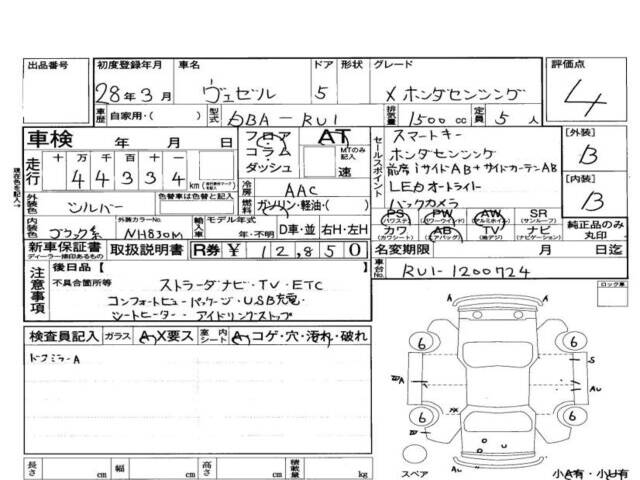 出品番号 初度登録年月 車名 ドア 形状 グレード 評価点
28年3月 ヴェゼル 5 X ホンダセンシング 4
車歴 自家用・( ) 型式 DBA-RU1 排気量 1500cc 定員 5人
車検 年 月 日 フロア AT スマートキー [外装]
コラム MTのみ記入 セールスポイント ホンダセンシング B
走行 十 万 千 百 十 一 ダッシュ 速 前席iサイドAB+サイドカーテンAB
44334 km 冷房 AAC LEDオートライト [内装]
外装色 シルバー 色替車は色替と記入 燃料 ガソリン・軽油・( ) バックカメラ B
内装色 ブラック系 外装カラーNo. NH830M 輸入車 モデル年式 年・不明 D車・並 右H・左H
PS PW AW SR
(パワステ) (パワーウインド) (アルミホイル) (サンルーフ)
カワ AB TV ナビ 純正品のみ丸印
(カワシート) (エアバッグ) (地デジ) (ナビゲーション)
新車保証書 取扱説明書 R券 ¥ 12,850 名変期限 月 日迄
ディーラー捺印あるもの
車台No. RU1-1200724
注意事項 後日品【 】
不具合箇所等 ストラーダナビ・TV・ETC
コンフォートビューパッケージ・USB充電
シートヒーター・アイドリングストップ
ロック車
検査員記入 ガラス A・X要ス 室内シート A・コゲ・穴・汚れ・破れ
ドアミラーA
6 6
S
A
AU
6 6
XX
AU
スペア
AU
小A有・小U有
長さ cm 幅 cm 高さ cm 積載量 kg